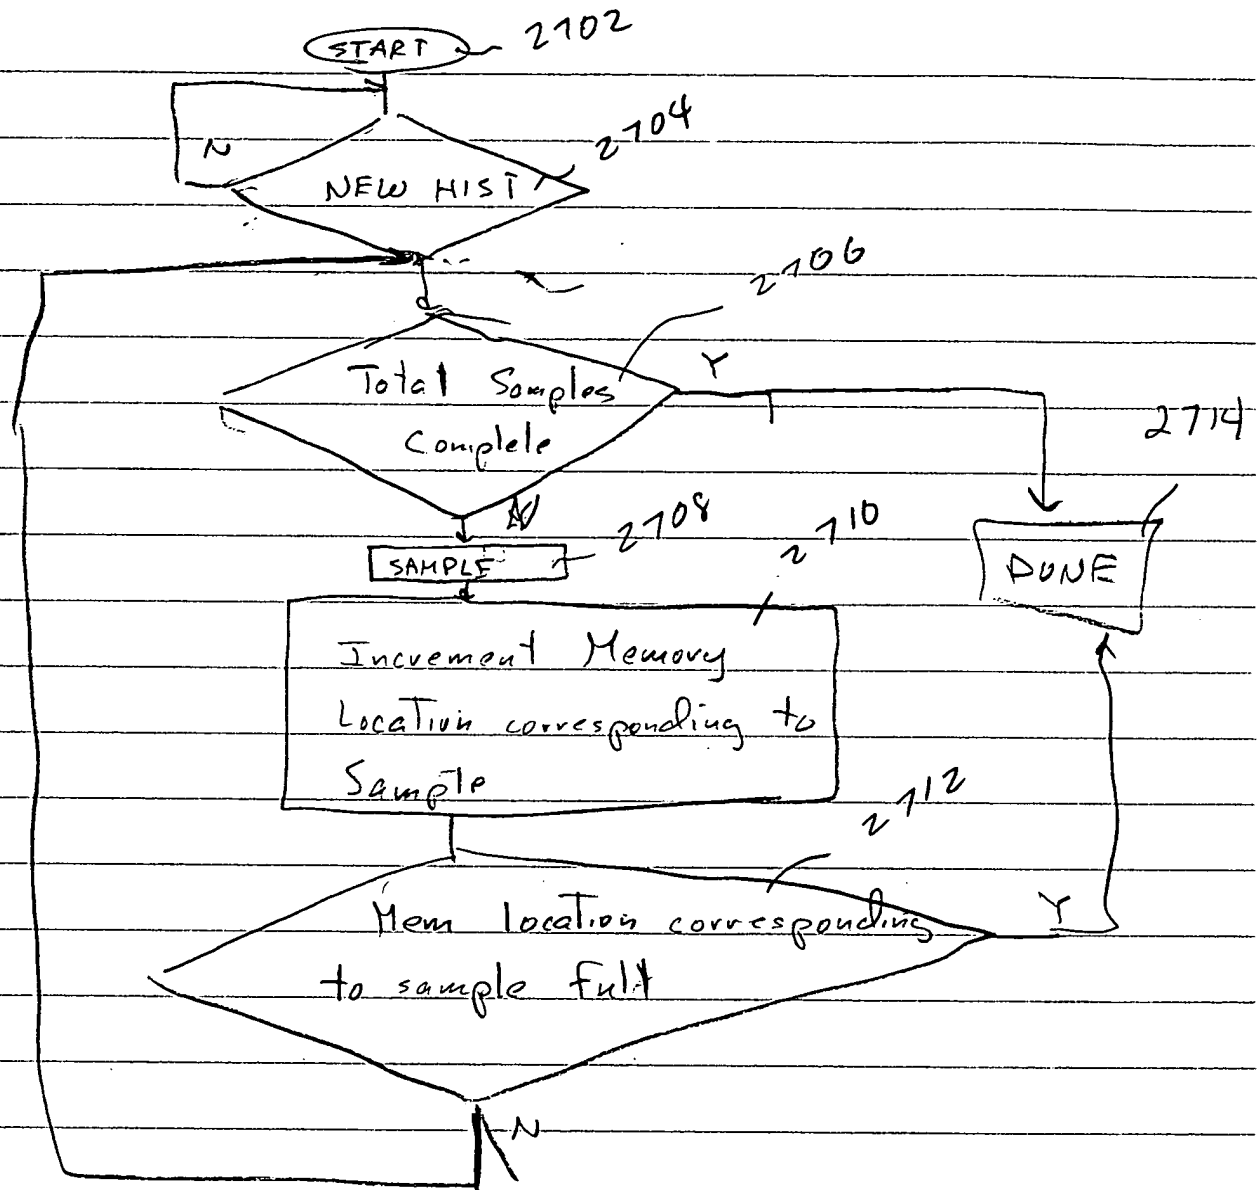 START 2702
2704
N
NEW HIST
2706
Total Samples Y
Complete
2714
N
2708 2710
SAMPLE
DONE
Increment Memory
Location corresponding to
Sample
2712
Mem location corresponding Y
to sample Full
N